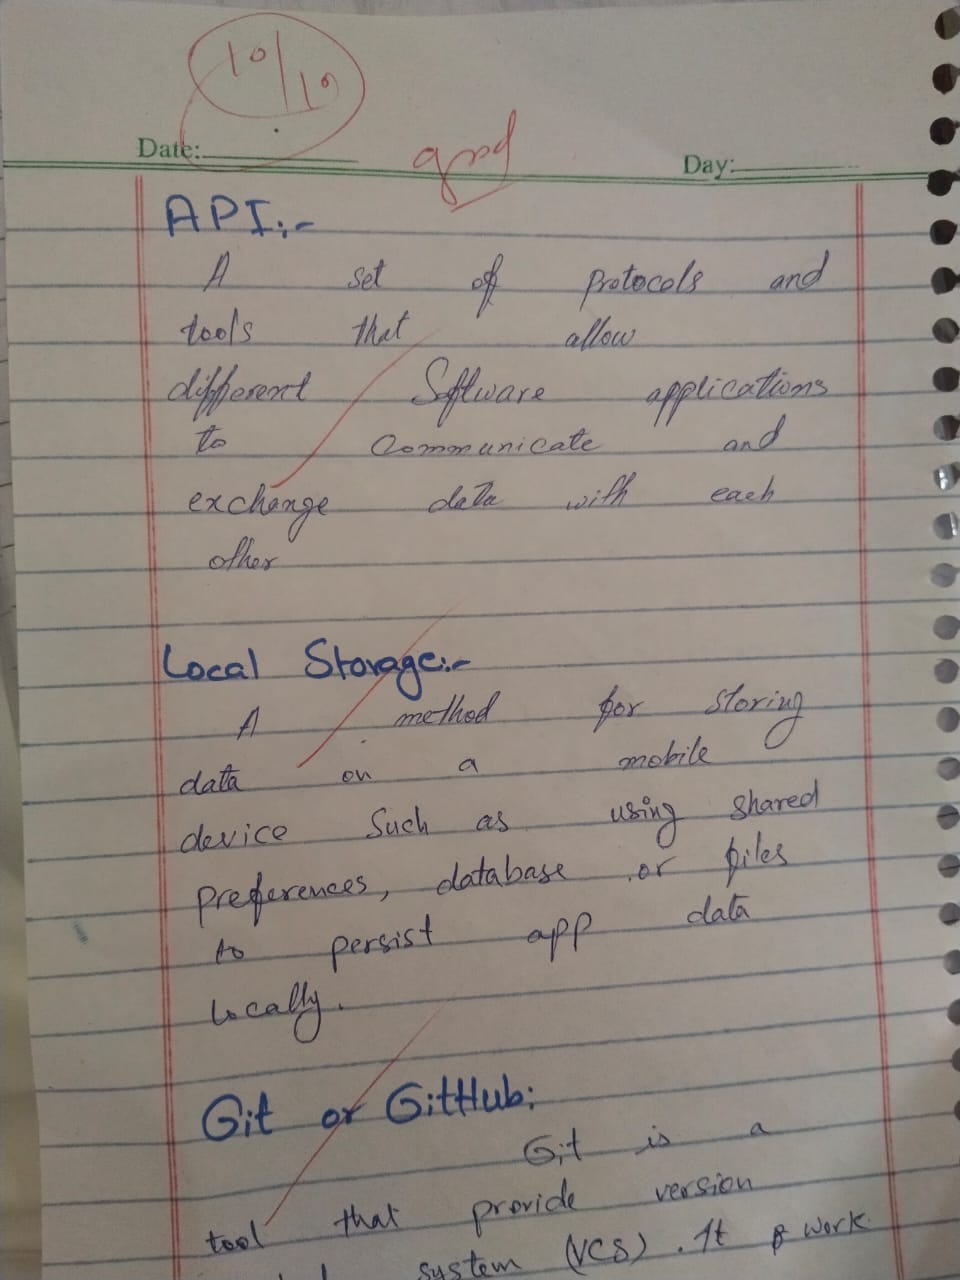 10/10
Date:
good
Day:
API:-
A set of protocols and
tools that allow
different Software applications
to Communicate and
exchange data with each
other
Local Storage:-
A method for storing
data on a mobile
device Such as using shared
preferences, database or files
to persist app data
locally.
Git or GitHub:
Git is a
tool that provide version
system (VCS). It work